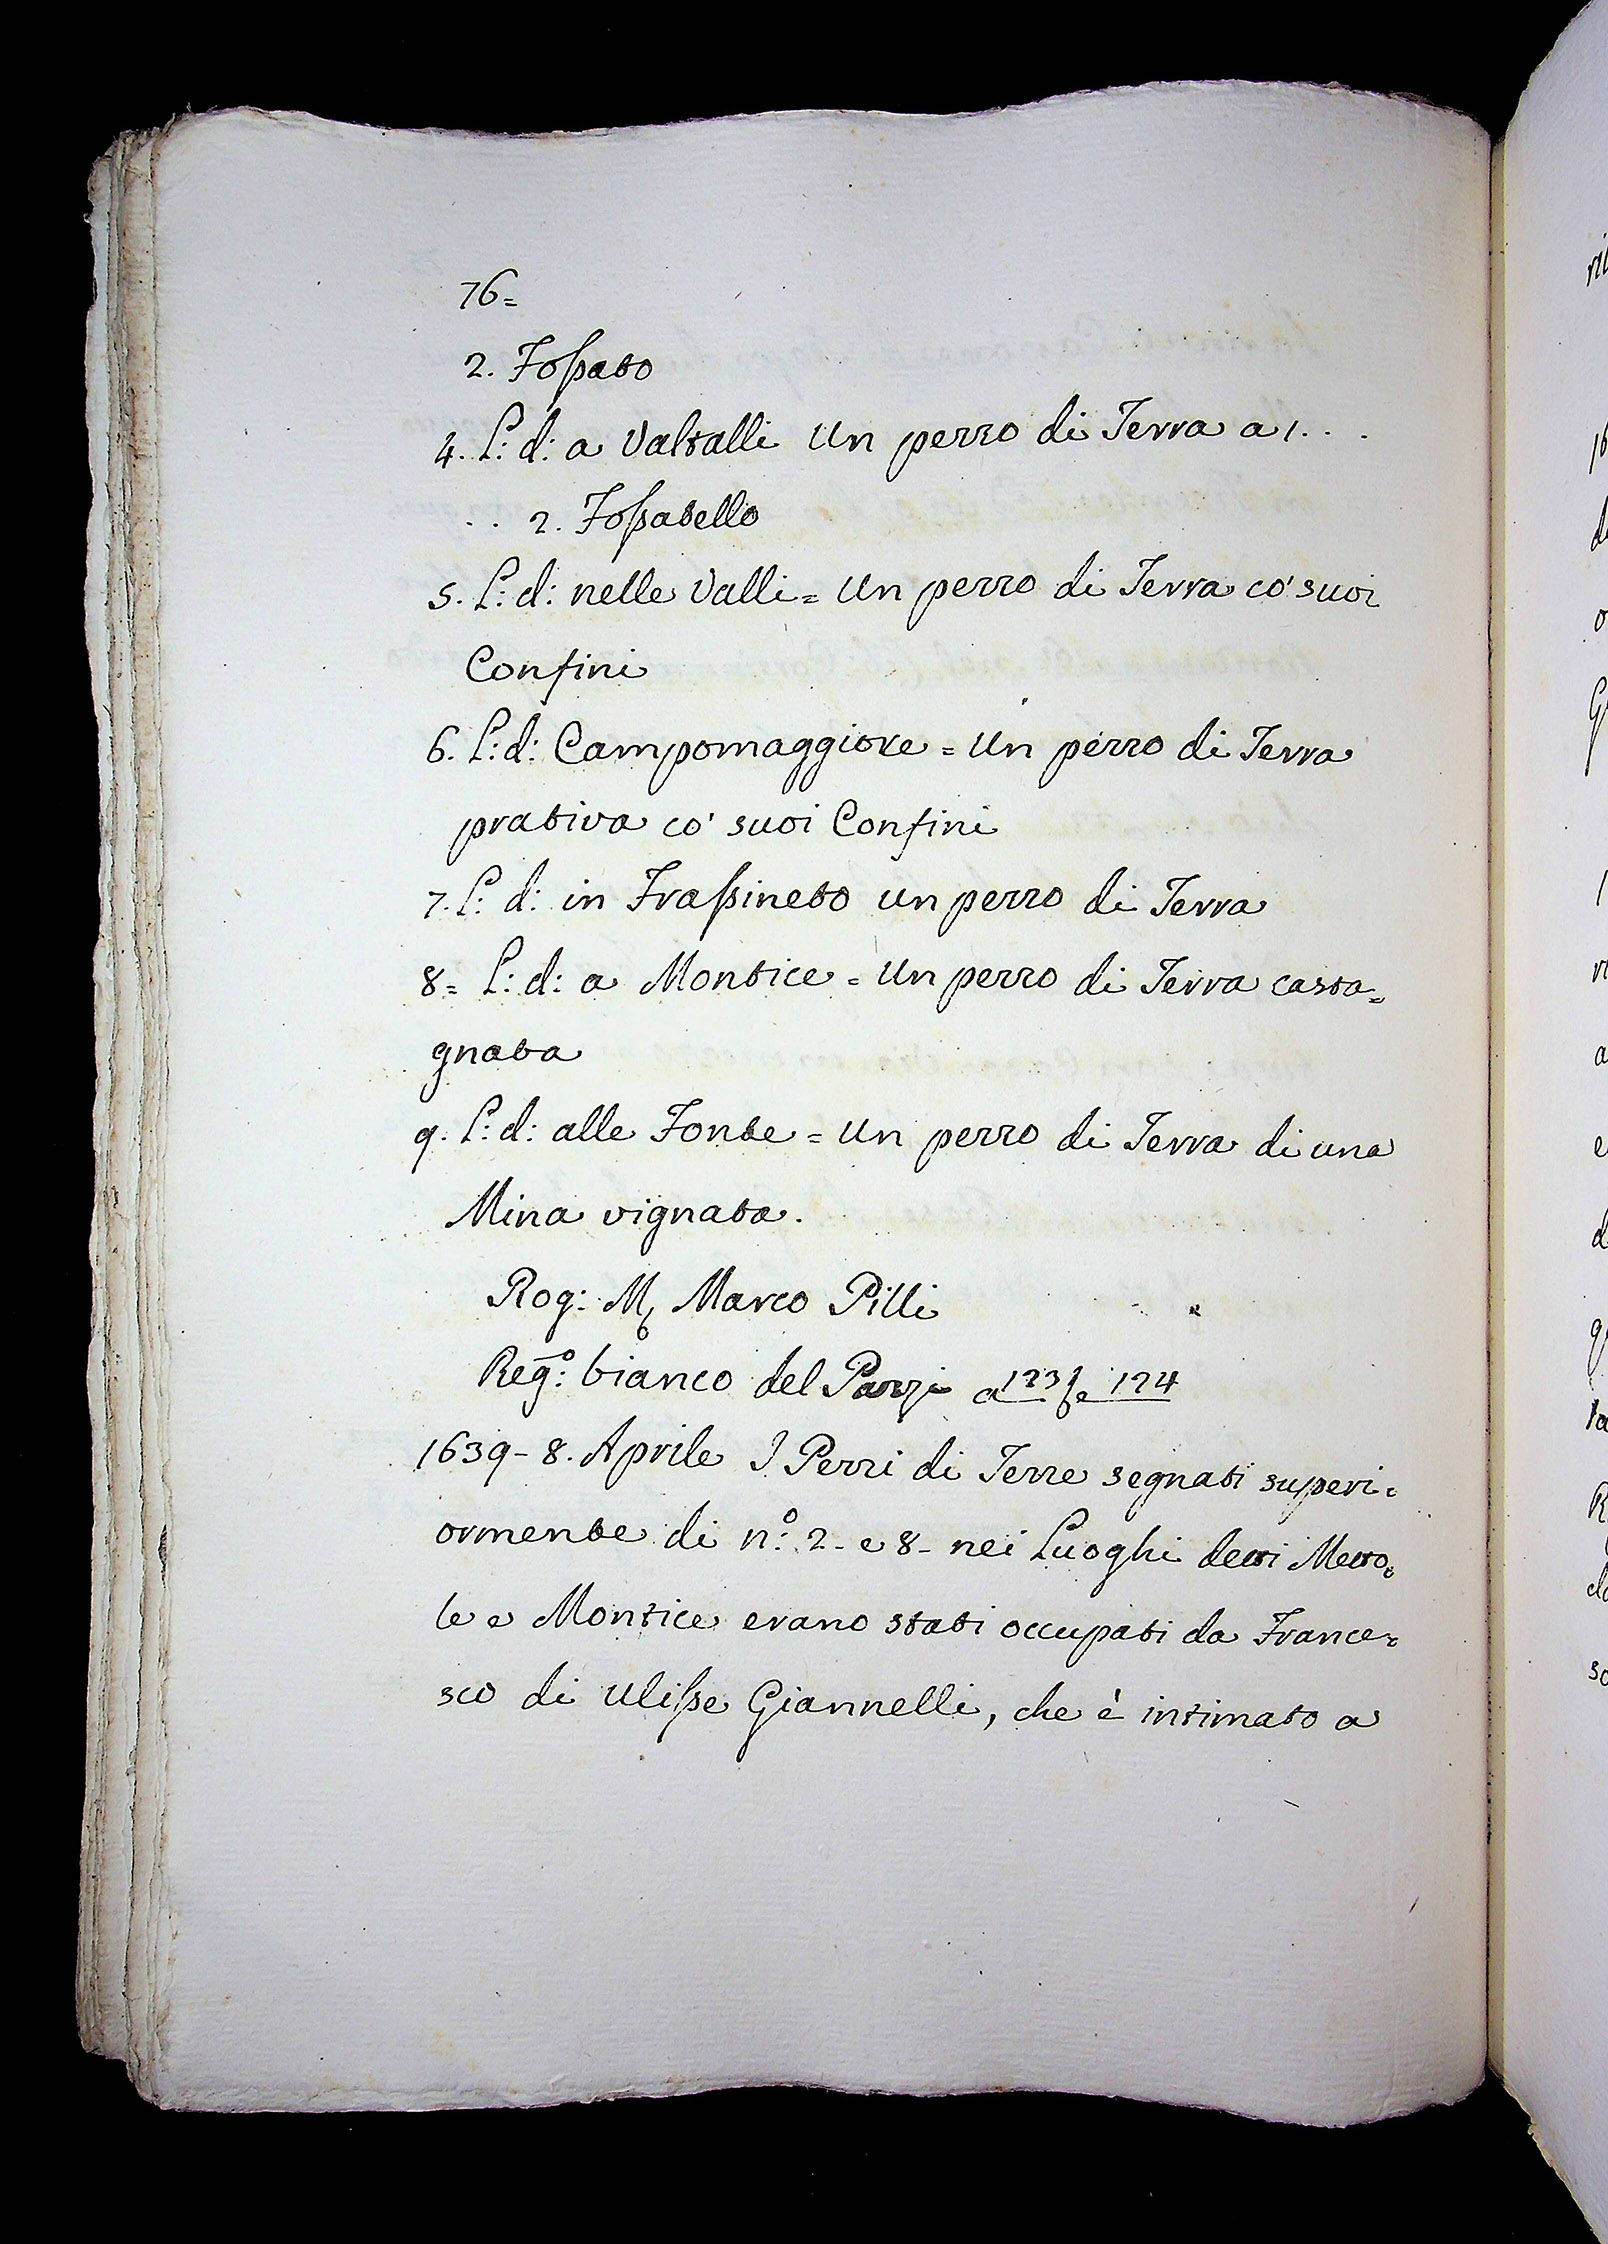 76=
2. Fossato
4. L: d: a Valtalli Un pezzo di Terra a 1. . .
. . 2. Fossatello
5. L: d: nelle Valli = Un pezzo di Terra co' suoi
Confini
6. L: d: Campomaggiore = Un pezzo di Terra
prativa co' suoi Confini
7. L: d: in Frassineto un pezzo di Terra
8= L: d: a Montice = Un pezzo di Terra casta=
gnata
9. L: d: alle Fonte = Un pezzo di Terra di una
Mina vignata.
Rog: M, Marco Pilli
Reg:o bianco del Panzi a 123 e 124
1639 - 8. Aprile I Pezzi di Terre segnati superi=
ormente di n:o 2 - e 8 - nei Luoghi detti Metto=
le e Montice erano stati occupati da France=
sco di Ulisse Giannelli, che è intimato a